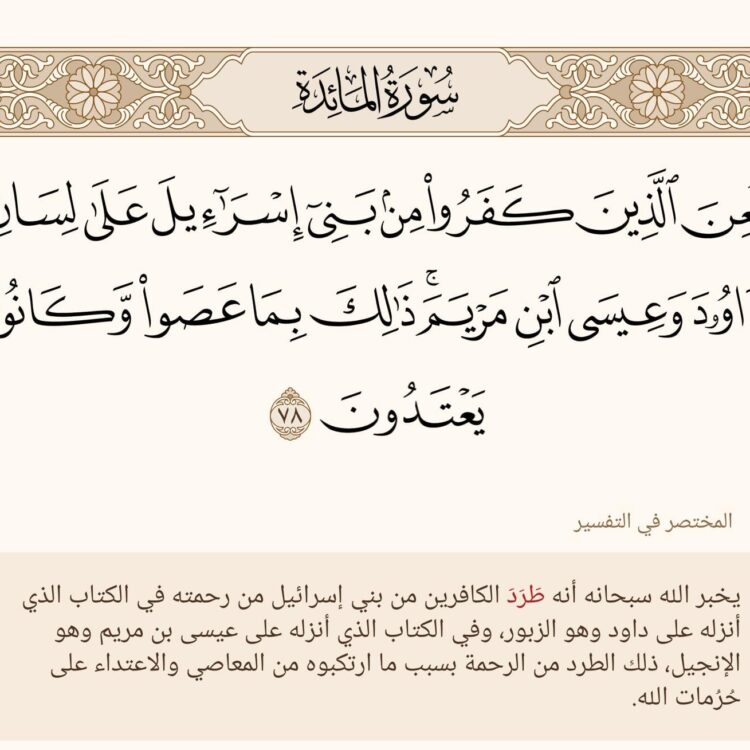 سُورَةُ المَائِدَةِ
ٱلَّذِينَ كَفَرُواْ مِنۢ بَنِيٓ إِسۡرَٰٓءِيلَ عَلَىٰ لِسَانِ
دَاوُۥدَ وَعِيسَى ٱبۡنِ مَرۡيَمَۚ ذَٰلِكَ بِمَا عَصَواْ وَّكَانُواْ
يَعۡتَدُونَ ٧٨
المختصر في التفسير
يخبر الله سبحانه أنه طَرَدَ الكافرين من بني إسرائيل من رحمته في الكتاب الذي
أنزله على داود وهو الزبور، وفي الكتاب الذي أنزله على عيسى بن مريم وهو
الإنجيل، ذلك الطرد من الرحمة بسبب ما ارتكبوه من المعاصي والاعتداء على
حُرُمات الله.